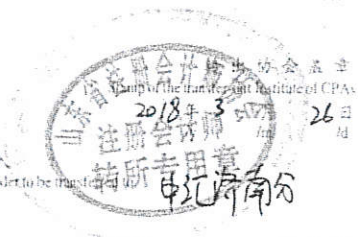 转出协会盖章
Stamp of the transfer-out Institute of CPAs
2018年 3月 26日
/y /m /d
山东省注册会计师协会
注册会计师
转所专用章
to be transferred to
中汇济南分